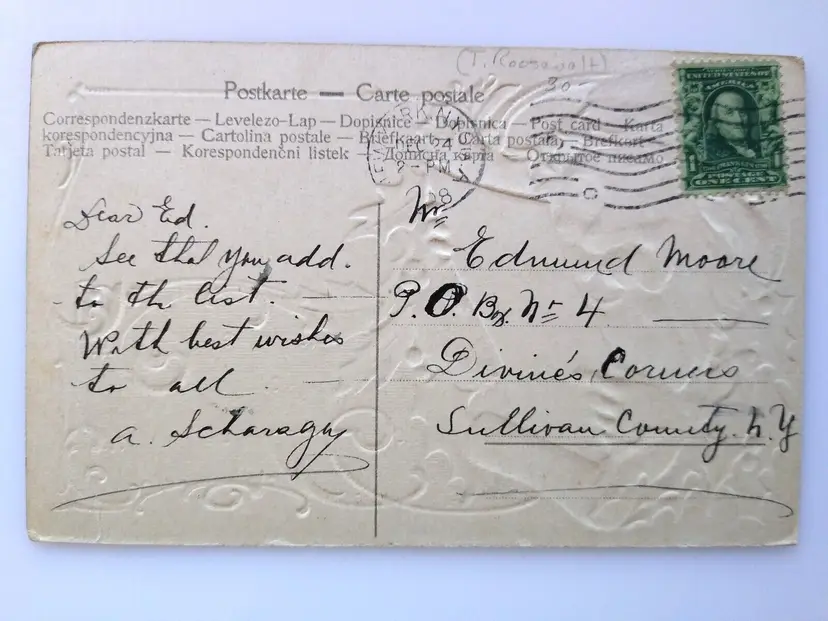 (T. Roosevelt)
30
Postkarte — Carte postale
Correspondenzkarte — Levelezo-Lap — Dopisnice — Dopisnica — Post card — Karta
korespondencyjna — Cartolina postale — Briefkaart — Carta postala — Brefkort —
Tarjeta postal — Korespondenční listek — Дописная карта — Открытое письмо
2-PM
UNITED STATES OF AMERICA
POSTAGE
ONE CENT
Dear Ed.
See that you add.
to the list.
With best wishes
to all
A. Scharagay
Mr
Edmund Moore
P.O. Bx No 4
Divine's Corners
Sullivan County. N.Y